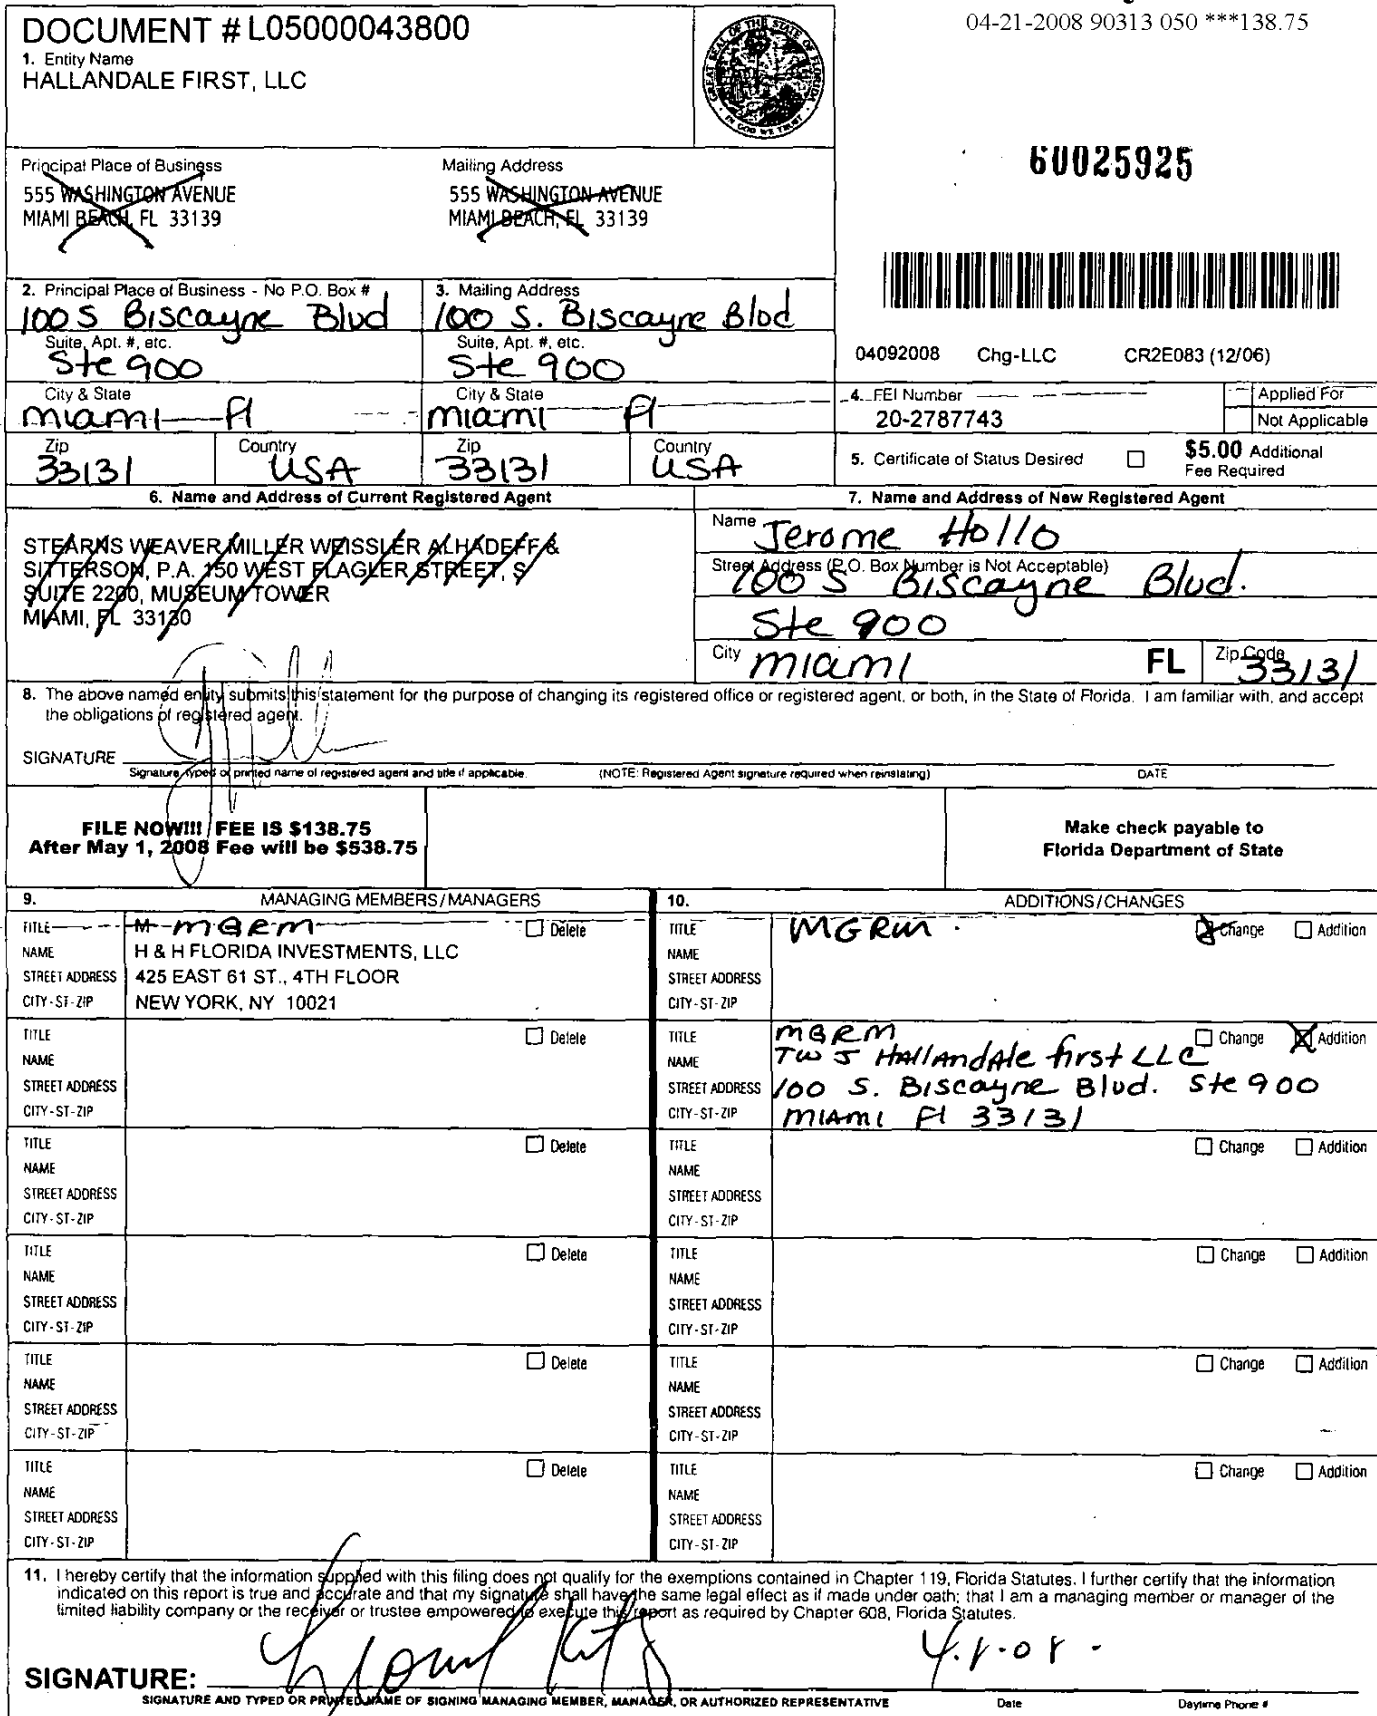 DOCUMENT # L05000043800
1. Entity Name
HALLANDALE FIRST, LLC
GREAT SEAL OF THE STATE OF FLORIDA
IN GOD WE TRUST
04-21-2008 90313 050 ***138.75
60025925
Principal Place of Business
555 WASHINGTON AVENUE
MIAMI BEACH, FL 33139
Mailing Address
555 WASHINGTON AVENUE
MIAMI BEACH, FL 33139
2. Principal Place of Business - No P.O. Box #
100 S Biscayne Blvd
Suite, Apt. #, etc.
Ste 900
City & State
Miami Fl
Zip
33131
Country
USA
3. Mailing Address
100 S. Biscayne Blvd
Suite, Apt. #, etc.
Ste 900
City & State
Miami Fl
Zip
33131
Country
USA
04092008 Chg-LLC CR2E083 (12/06)
4. FEI Number
20-2787743
Applied For
Not Applicable
5. Certificate of Status Desired
$5.00 Additional
Fee Required
6. Name and Address of Current Registered Agent
STEARNS WEAVER MILLER WEISSLER ALHADEFF &
SITTERSON, P.A. 150 WEST FLAGLER STREET, S
SUITE 2200, MUSEUM TOWER
MIAMI, FL 33130
7. Name and Address of New Registered Agent
Name Jerome Hollo
Street Address (P.O. Box Number is Not Acceptable)
100 S Biscayne Blvd.
Ste 900
City Miami FL Zip Code 33131
8. The above named entity submits this statement for the purpose of changing its registered office or registered agent, or both, in the State of Florida. I am familiar with, and accept
the obligations of registered agent.
SIGNATURE
Signature, typed or printed name of registered agent and title if applicable. (NOTE: Registered Agent signature required when reinstating) DATE
FILE NOW!!! FEE IS $138.75
After May 1, 2008 Fee will be $538.75
Make check payable to
Florida Department of State
9. MANAGING MEMBERS/MANAGERS
TITLE M MGRM Delete
NAME H & H FLORIDA INVESTMENTS, LLC
STREET ADDRESS 425 EAST 61 ST., 4TH FLOOR
CITY-ST-ZIP NEW YORK, NY 10021
TITLE Delete
NAME
STREET ADDRESS
CITY-ST-ZIP
TITLE Delete
NAME
STREET ADDRESS
CITY-ST-ZIP
TITLE Delete
NAME
STREET ADDRESS
CITY-ST-ZIP
TITLE Delete
NAME
STREET ADDRESS
CITY-ST-ZIP
TITLE Delete
NAME
STREET ADDRESS
CITY-ST-ZIP
10. ADDITIONS/CHANGES
TITLE MGRM. Change Addition
NAME
STREET ADDRESS
CITY-ST-ZIP
TITLE MGRM Change Addition
NAME TWJ Hallandale first LLC
STREET ADDRESS 100 S. Biscayne Blvd. Ste 900
CITY-ST-ZIP Miami Fl 33131
TITLE Change Addition
NAME
STREET ADDRESS
CITY-ST-ZIP
TITLE Change Addition
NAME
STREET ADDRESS
CITY-ST-ZIP
TITLE Change Addition
NAME
STREET ADDRESS
CITY-ST-ZIP
TITLE Change Addition
NAME
STREET ADDRESS
CITY-ST-ZIP
11. I hereby certify that the information supplied with this filing does not qualify for the exemptions contained in Chapter 119, Florida Statutes. I further certify that the information
indicated on this report is true and accurate and that my signature shall have the same legal effect as if made under oath; that I am a managing member or manager of the
limited liability company or the receiver or trustee empowered to execute this report as required by Chapter 608, Florida Statutes.
SIGNATURE:
SIGNATURE AND TYPED OR PRINTED NAME OF SIGNING MANAGING MEMBER, MANAGER, OR AUTHORIZED REPRESENTATIVE Date Daytime Phone #